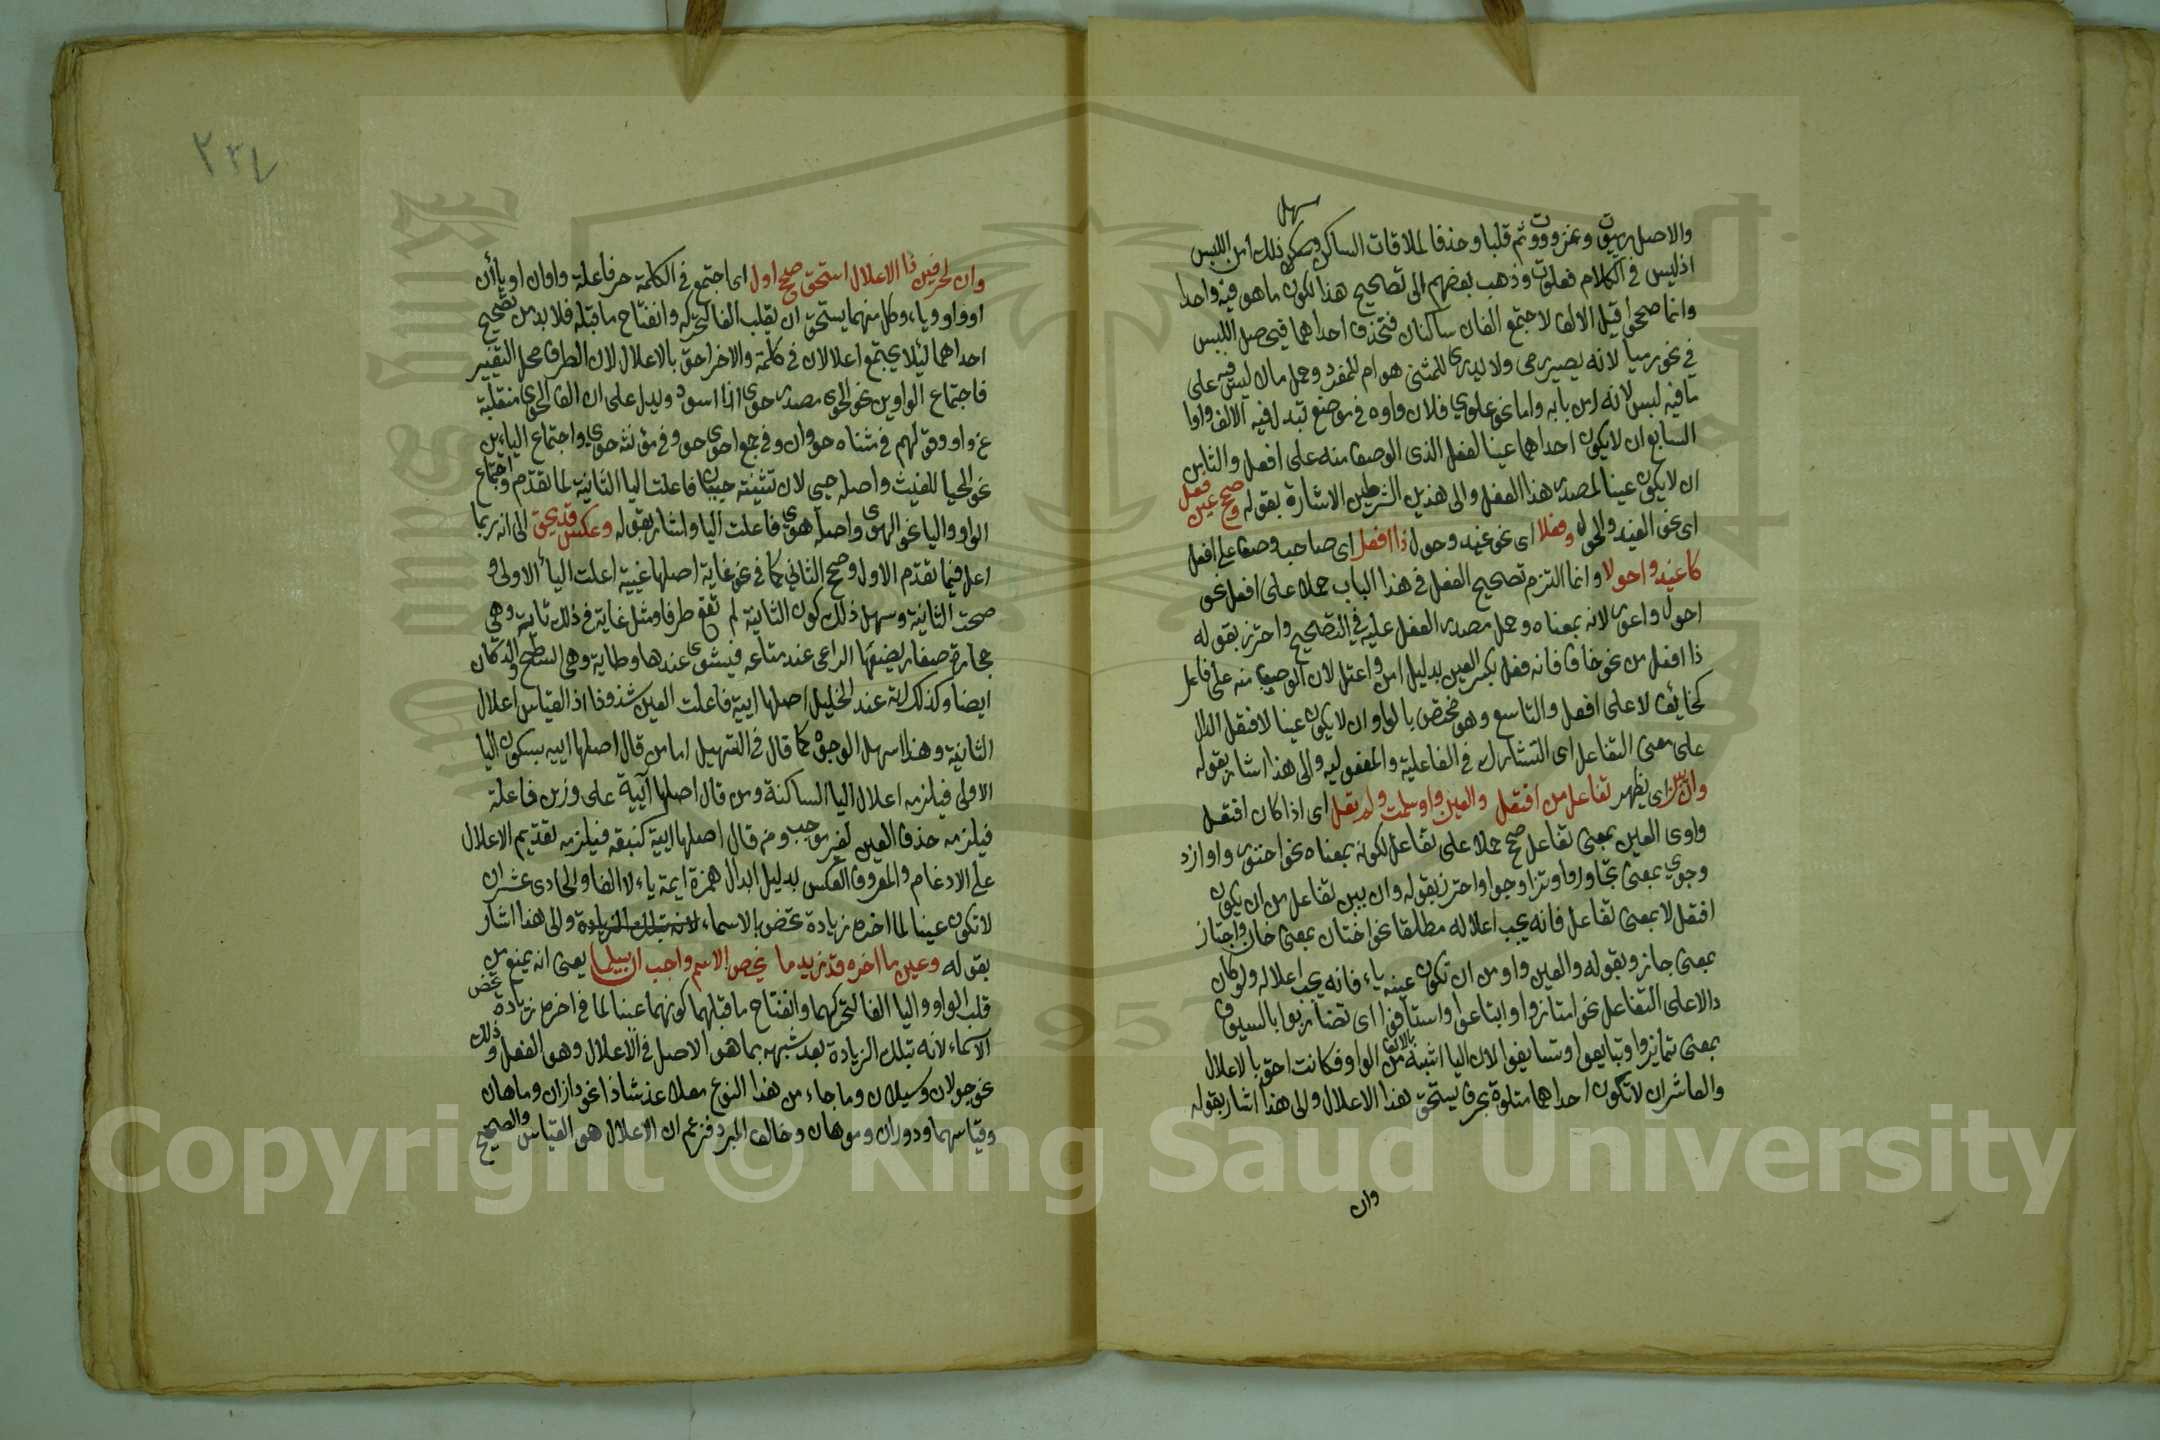 سهل
والاصل رميوت وغزووت ثم قلبا وحذفا لملاقات الساكن وسهل ذلك امن اللبس
اذ ليس في الكلام فعلوت وذهب بعضهم الى تصحيح هذا لكون ما هو فيه واحدا
وانما صححوا قبل الالف لاجتمع الفان ساكنان فتحذف احداهما فيحصل اللبس
في نحو رميا لانه يصير رمى ولا يدرى للمثنى هو ام للمفرد وحمل مالا لبس فيه على
ما فيه لبس لانه من بابه واما نحو علوي فلان واوه في موضع تبدل فيه الالف واوا
السابع ان لا يكون احداهما عينا لفعل الذى الوصف منه على افعل والثامن
ان لا يكون عينا لمصدر هذا الفعل والى هذين الشرطين الاشارة بقوله وصح عين فعل
اى نحو الغيد والحول وفعلا اى نحو غيد وحول ذا افعل اى صاحب وصف على افعل
كاغيد واحولا وانما التزم تصحيح الفعل في هذا الباب حملا على افعل نحو
احول واعور لانه بمعناه وحمل مصدر الفعل عليه في التصحيح واحترز بقوله
ذا افعل من نحو خاف فانه فعل بكسر العين بدليل امن واعتل لان الوصف منه على فاعل
كخائف لا على افعل والتاسع وهو مختص بالواو ان لا يكون عينا لافتعل الدال
على معنى التفاعل اى التشارك في الفاعلية والمفعوليه والى هذا اشار بقوله
وان يبن اى يظهر تفاعل من افتعل والعين واو سلمت ولم يعل اى اذا كان افتعل
واوى العين بمعنى تفاعل صح حملا على تفاعل لكونه بمعناه نحو اجتور وا وازد
وجوى بمعنى تجاوروا وتزاوجوا واحترز بقوله وان يبن تفاعل من ان يكون
افتعل لا بمعنى تفاعل فانه يجب اعلاله مطلقا نحو اختان بمعنى خان واجتاز
بمعنى جاز وبقوله والعين واو من ان تكون عينه ياء فانه يجب اعلاله ولو كان
دالا على التفاعل نحو امتازوا وابتاعوا واستافوا اى تضاربوا بالسيوف
بمعنى تمايزوا وتبايعوا وتسايفوا لان اليا اشبه بالالف من الواو فكانت احق بالاعلال
والعاشر ان لا تكون احداهما متلوة بحرف يستحق هذا الاعلال والى هذا اشار بقوله
وان
٢٣٤
وان لحرفين ذا الاعلال استحق صح اول اى اجتمع في الكلمة حرفا علة واوان او ياأن
او واو وياء وكل منهما يستحق ان يقلب الفا لتحركه وانفتاح ما قبله فلا بد من تصحيح
احداهما ليلا يجتمع اعلالان في كلمة والاخر احق بالاعلال لان الطرف محل التغيير
فاجتماع الواوين نحو الحوى مصدر حوى اذا اسود ويدل على ان الف الحوى منقلبة
عن واو وقولهم في مثناه حووان وفي جمع احوى حو وفي مؤنثه حوى واجتماع الياءين
نحو الحيا للغيث واصله حيي لان تثنيته حييان فاعلت اليا الثانية لما تقدم واجتماع
الواو واليا نحو الهوى واصله هوي فاعلت اليا واشار بقوله وعكس قد يحق الى انه ربما
اعل فيما تقدم الاول وصح الثاني كما في نحو غاية اصلها غيية اعلت اليأ الاولى و
صحت الثانية وسهل ذلك كون الثانية لم تقع طرفا ومثل غاية في ذلك ثاية وهي
حجارة صغار يضعها الراعى عند متاعه فيشوى عندها وطاية وهي السطح والدكان
ايضا وكذلك اية عند الخليل اصلها ايية فاعلت العين شذوذا اذ القياس اعلال
الثانية وهذا اسهل الوجوه كما قال في التسهيل اما من قال اصلها اييه بسكون اليا
الاولى فيلزمه اعلال اليا الساكنة ومن قال اصلها آيية على وزن فاعلة
فيلزمه حذف العين لغير موجب ومن قال اصلها ايية كنبقه فيلزمه تقديم الاعلال
على الادغام والمعروف العكس بدليل ابدال همزة ايمة ياء لا الفا والحادى عشر ان
لا تكون عينا لما اخره زيادة تختص بالاسماء لانه بتلك الزيادة والى هذا اشار
بقوله وعين ما اخره قد زيد ما يخص الاسم واجب ان يسلما يعنى انه يمنع من
قلب الواو واليا الفا لتحركهما وانفتاح ما قبلهما كونهما عينا لما في اخره زيادة تختص
الاسماء لانه بتلك الزيادة بعد شبهه بما هو الاصل في الاعلال وهو الفعل وذلك
نحو جولان وسيلان وما جاء من هذا النوع معلا عد شاذا نحو داران وماهان
وقياسهما ودوران وموهان وخالف المبرد فزعم ان الاعلال هو القياس والصحيح